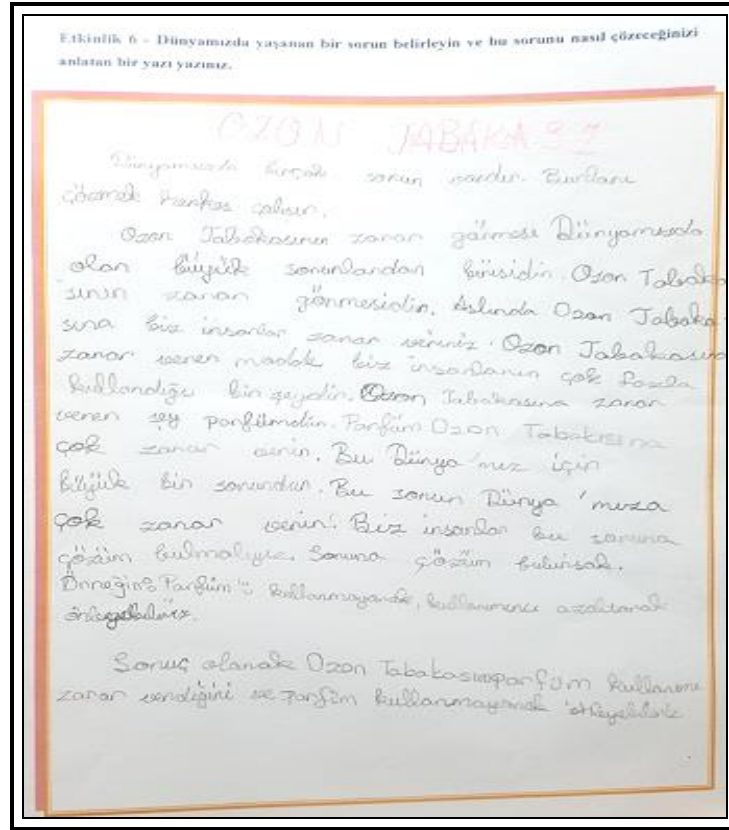 Etkinlik 6 - Dünyamızda yaşanan bir sorun belirleyin ve bu sorunu nasıl çözeceğinizi
anlatan bir yazı yazınız.
OZON TABAKASI
Dünyamızda birçok sorun vardır. Bunları
çözmek herkes çalışır.
Ozon Tabakasının zarar görmesi Dünyamızda
olan büyük sorunlardan birisidir. Ozon Tabaka
sının zarar görmesidir. Aslında Ozon Tabaka
sına biz insanlar zarar veririz. Ozon Tabakasına
zarar veren madde biz insanların çok fazla
kullandığı bir şeydir. Ozon Tabakasına zarar
veren şey parfümdür. Parfüm Ozon Tabakasına
çok zarar verir. Bu Dünya'mız için
büyük bir sorundur. Bu sorun Dünya'mıza
çok zarar verir. Biz insanlar bu soruna
çözüm bulmalıyız. Soruna çözüm bulursak.
Örneğin: Parfüm'ü kullanmayarak, kullanımını azaltarak
önleyebiliriz.
Sonuç olarak Ozon Tabakasına parfüm kullanımı
zarar verdiğini ve parfüm kullanmayarak